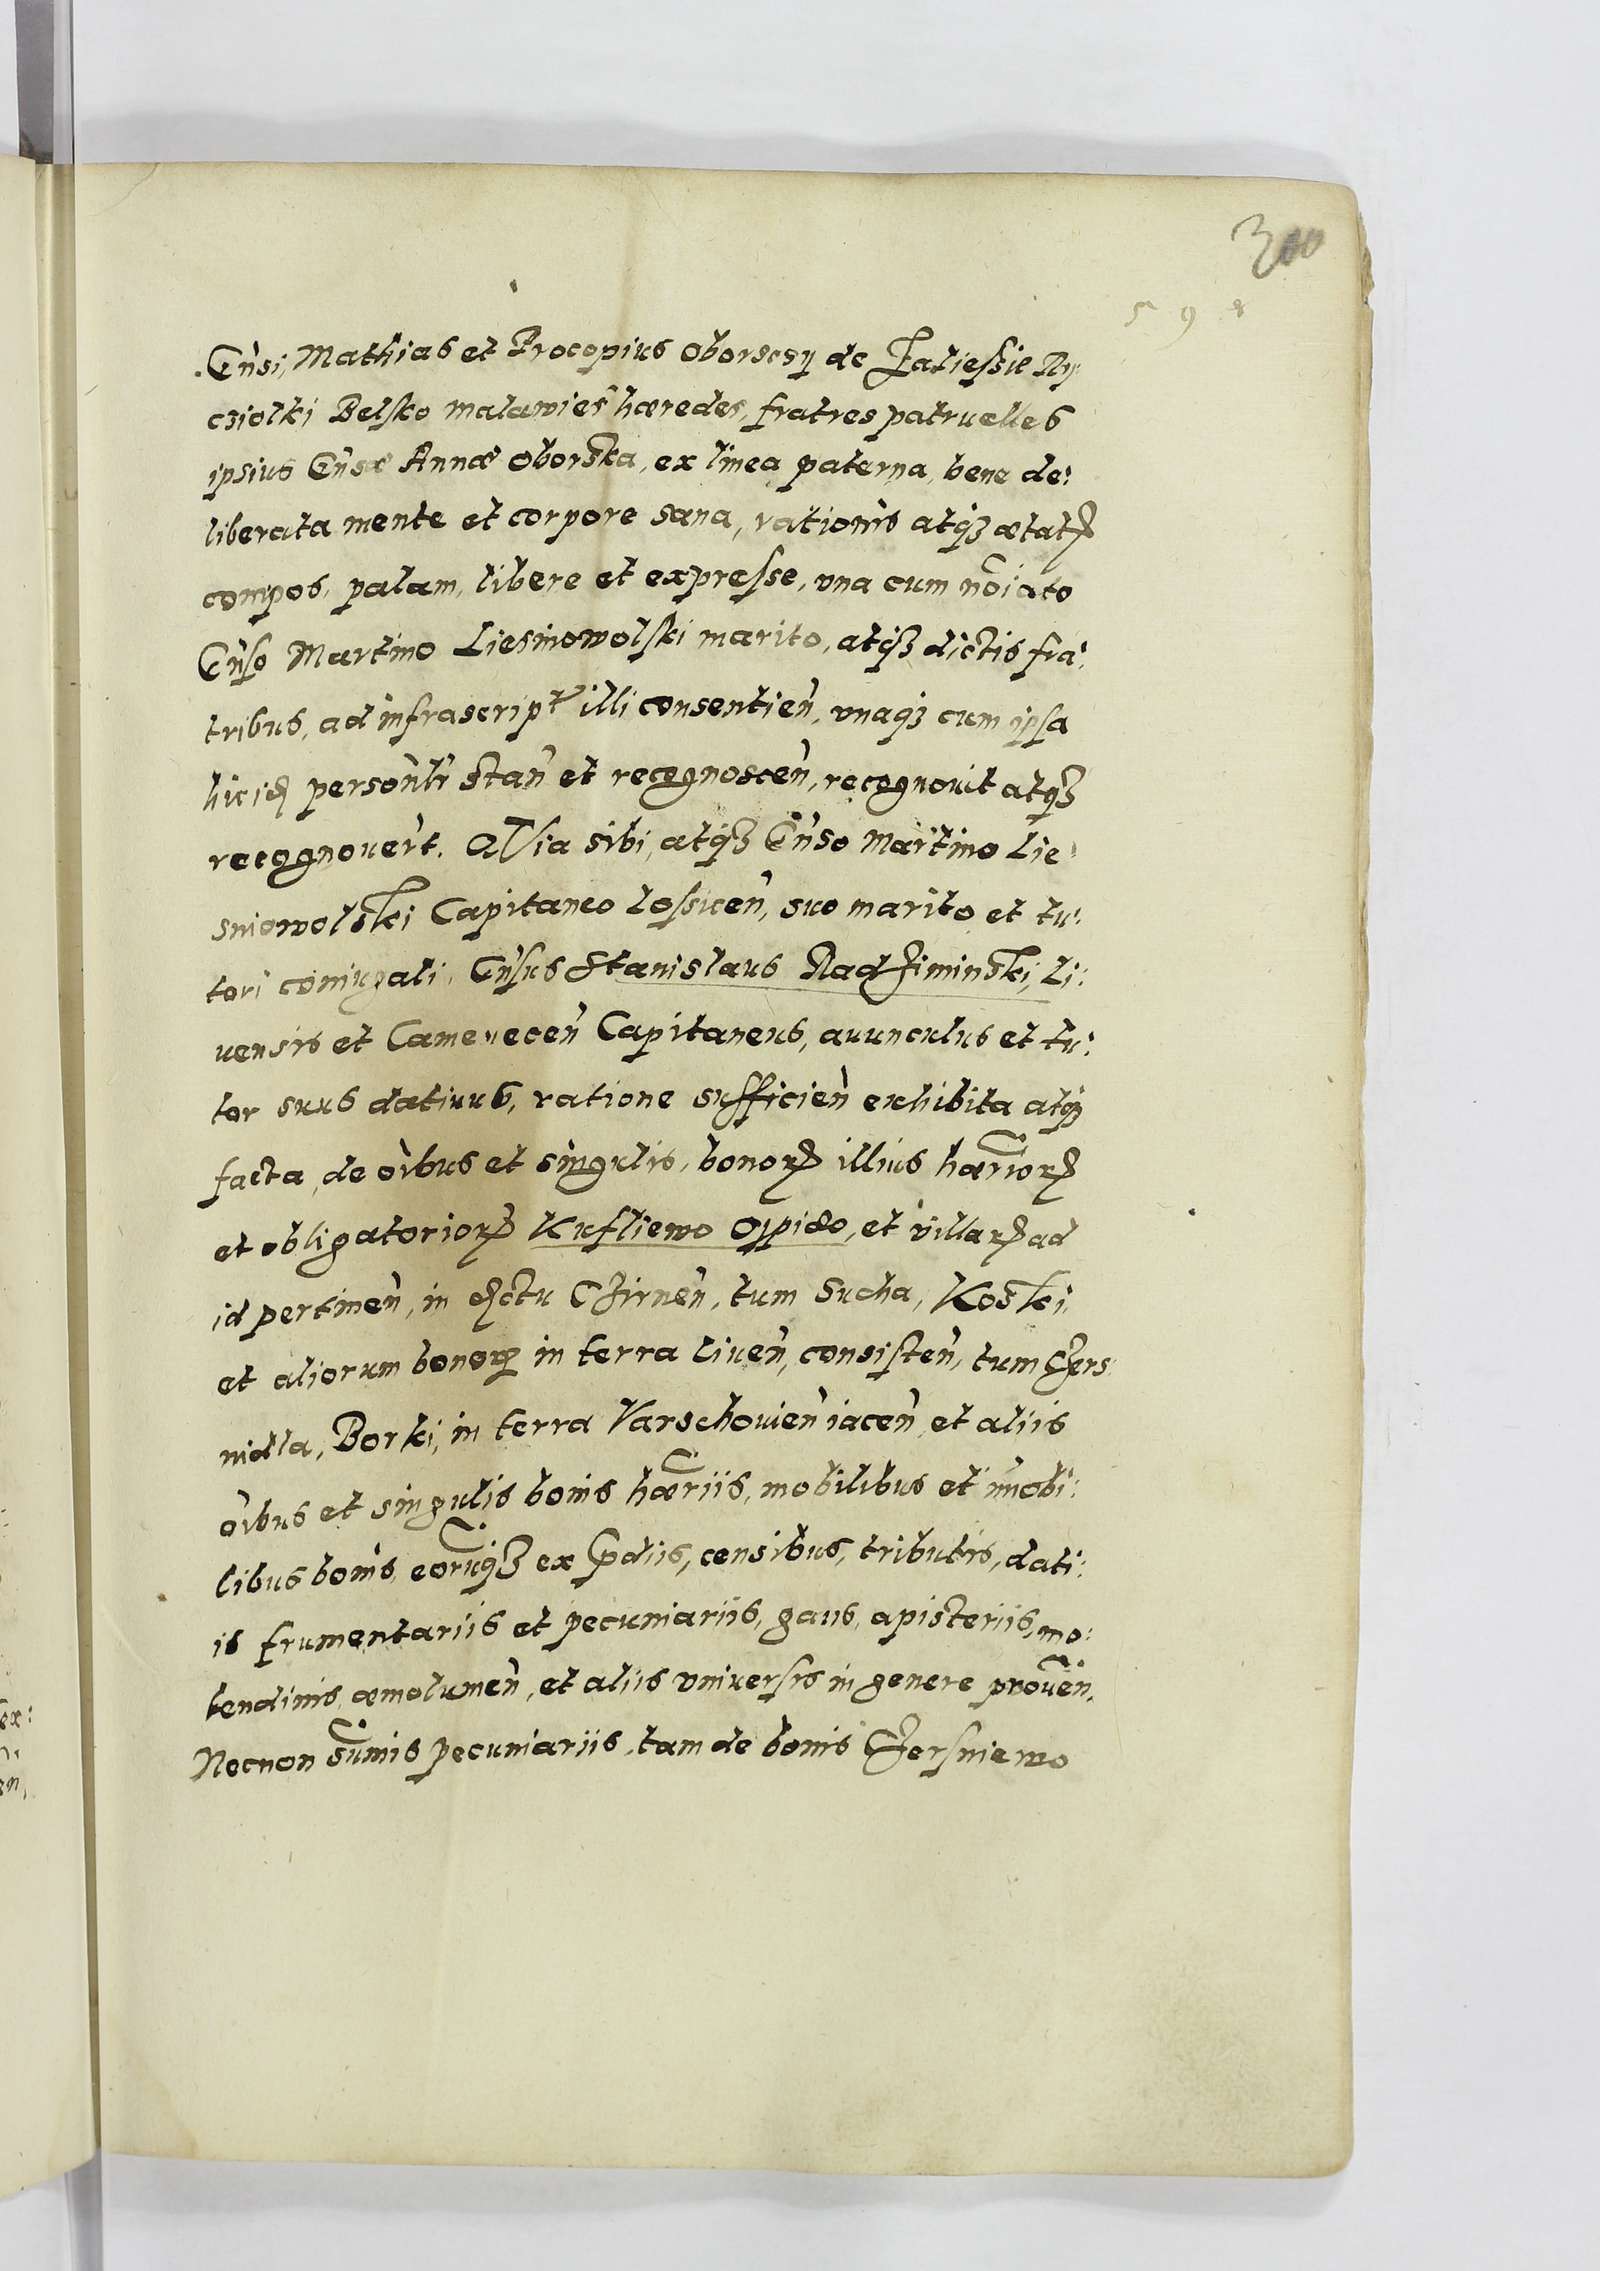 300
598
Gn̄si, Mathias et Procopius Oborscsy de Zaliessie Ry:
cziolki Belsko malawieś hæredes, fratres patrueles
ipsius Gn̄sæ Annæ Oborska, ex linea paterna, bene de:
liberata mente et corpore sana, rationis atq3 ætatis
compos, palam, libere et expresse, vna cum nōiato
Gn̄so Martino Liesniowolski marito, atq3 dictis fra:
tribus, ad infrascript illi consentien̄, vnaq3 cum ipsa
hicid persōnlr stan̄ et recognoscen̄, recognouit atq3
recognouer̄t. Q\Via sibi, atq3 Gn̄so Martino Lie
sniowolski Capitaneo lossicen̄, suo marito et tu:
tori coniugali, Gn̄sus Stanislaus Radziminski, Li:
uensis et Camenecen̄ Capitaneus, auunculus et tu:
tor suus datiuus, ratione sufficien̄ exhibita atq3
facta, de ōibus et singulis, bonorꝝ illius hærīorꝝ
et obligatoriorꝝ Kufliewo Oppido, et villarꝝ ad
id pertinen̄, in dictu Czirnen̄, tum Sucha, Koski,
et aliorum bonorꝝ in terra liuen̄, consisten̄, tum Czers
nidla, Borki, in terra Varschouien̄ iacen̄, et aliis
ōibus et singulis bonis hæriis, mobilibus et īmobi:
libus bonis, eorūq3 ex prædiis, censibus, tributis, dati:
is frumentariis et pecuniariis, gaiis, apisteriis, mo:
lendinis, æmolumen̄, et aliis vniuersis in genere prouēn,
Necnon sūmis pecuniariis, tam de bonis Czersniewo